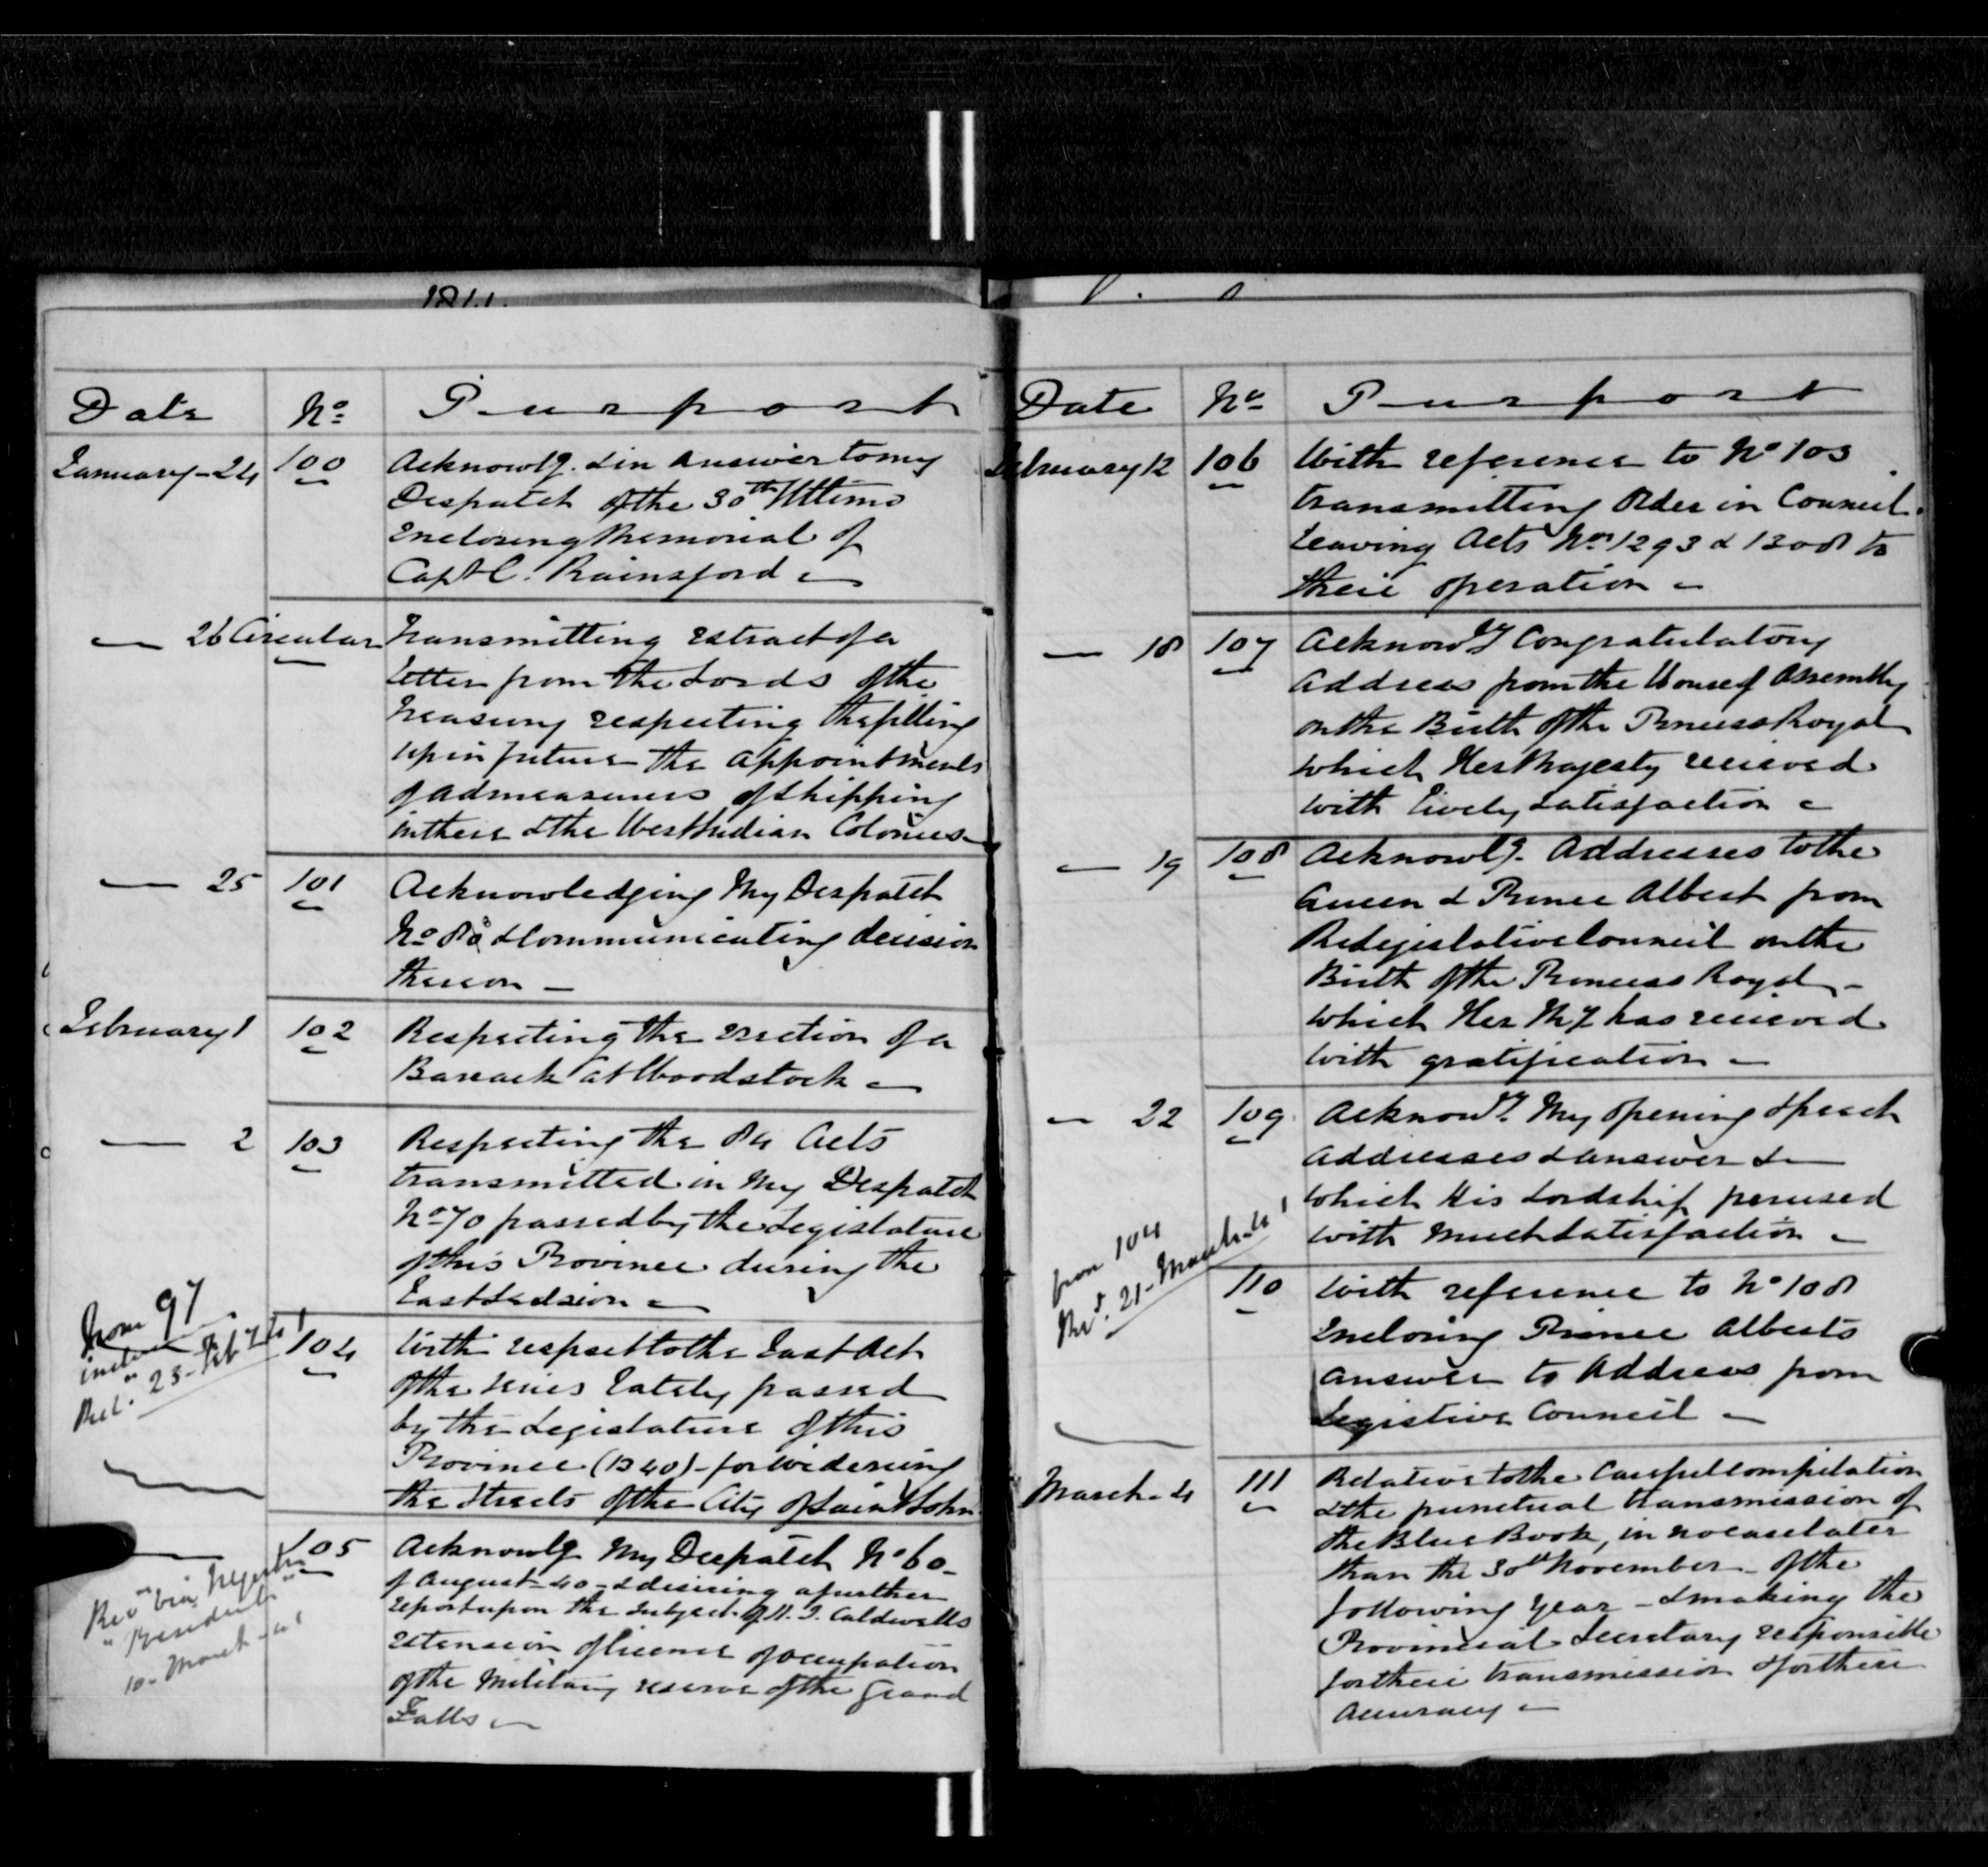 1841
Date No Purport
January - 24 100 Acknowlg. & in answer to my
Despatch of the 30th Ultimo
enclosing Memorial of
Capt C. Rainsford
— 26 Circular Transmitting extract of a
letter from the Lords of the
Treasury respecting the filling
up in future the appointments
of admeasurers of shipping
in these & the West Indian Colonies
— 25 101 Acknowledging My Despatch
No & Communicating decision
thereon —
February 1 102 Respecting the erection of a
Barrack at Woodstock —
— 2 103 Respecting the 84 Acts
transmitted in My Despatch
No 70 passed by the Legislature
of this Province during the
Last Session —
From 97
Rec. 23 - Feb
104 With respect to the Last Act
of the series lately passed
by the Legislature of this
Province (1840) - for widening
the Streets of the City of Saint John
105 Acknowlg My Despatch No 60 -
of August - 40 - & desiring a further
report upon the subject of Caldwells
extension of license of occupation
of the Military reserve of the Grand
Falls —
"President"
10 - March - 41
Date No Purport
February 12 106 With reference to No 103
transmitting Order in Council
Leaving Acts Nos 1293 & 1308 to
their operation —
— 18 107 Acknowlg Congratulatory
Address from the House of Assembly
on the Birth of the Princess Royal
which Her Majesty received
with lively satisfaction —
— 19 108 Acknowlg. Addresses to the
Queen & Prince Albert from
Legislative Council on the
Birth of the Princess Royal —
which Her My has received
with gratification —
— 22 109 Acknowg. My opening speech
Addresses & answer &
which His Lordship perused
with much satisfaction —
from 104
Rd. 21 - March - 41
110 With reference to No 108
Enclosing Prince Alberts
answer to Address from
Legistive Council —
March - 4 111 Relative to the Careful compilation
& the punctual transmission of
the Blue Book, in no case later
than the 30th November - of the
following year - & making the
Provincial Secretary responsible
for their transmission & for their
accuracy —